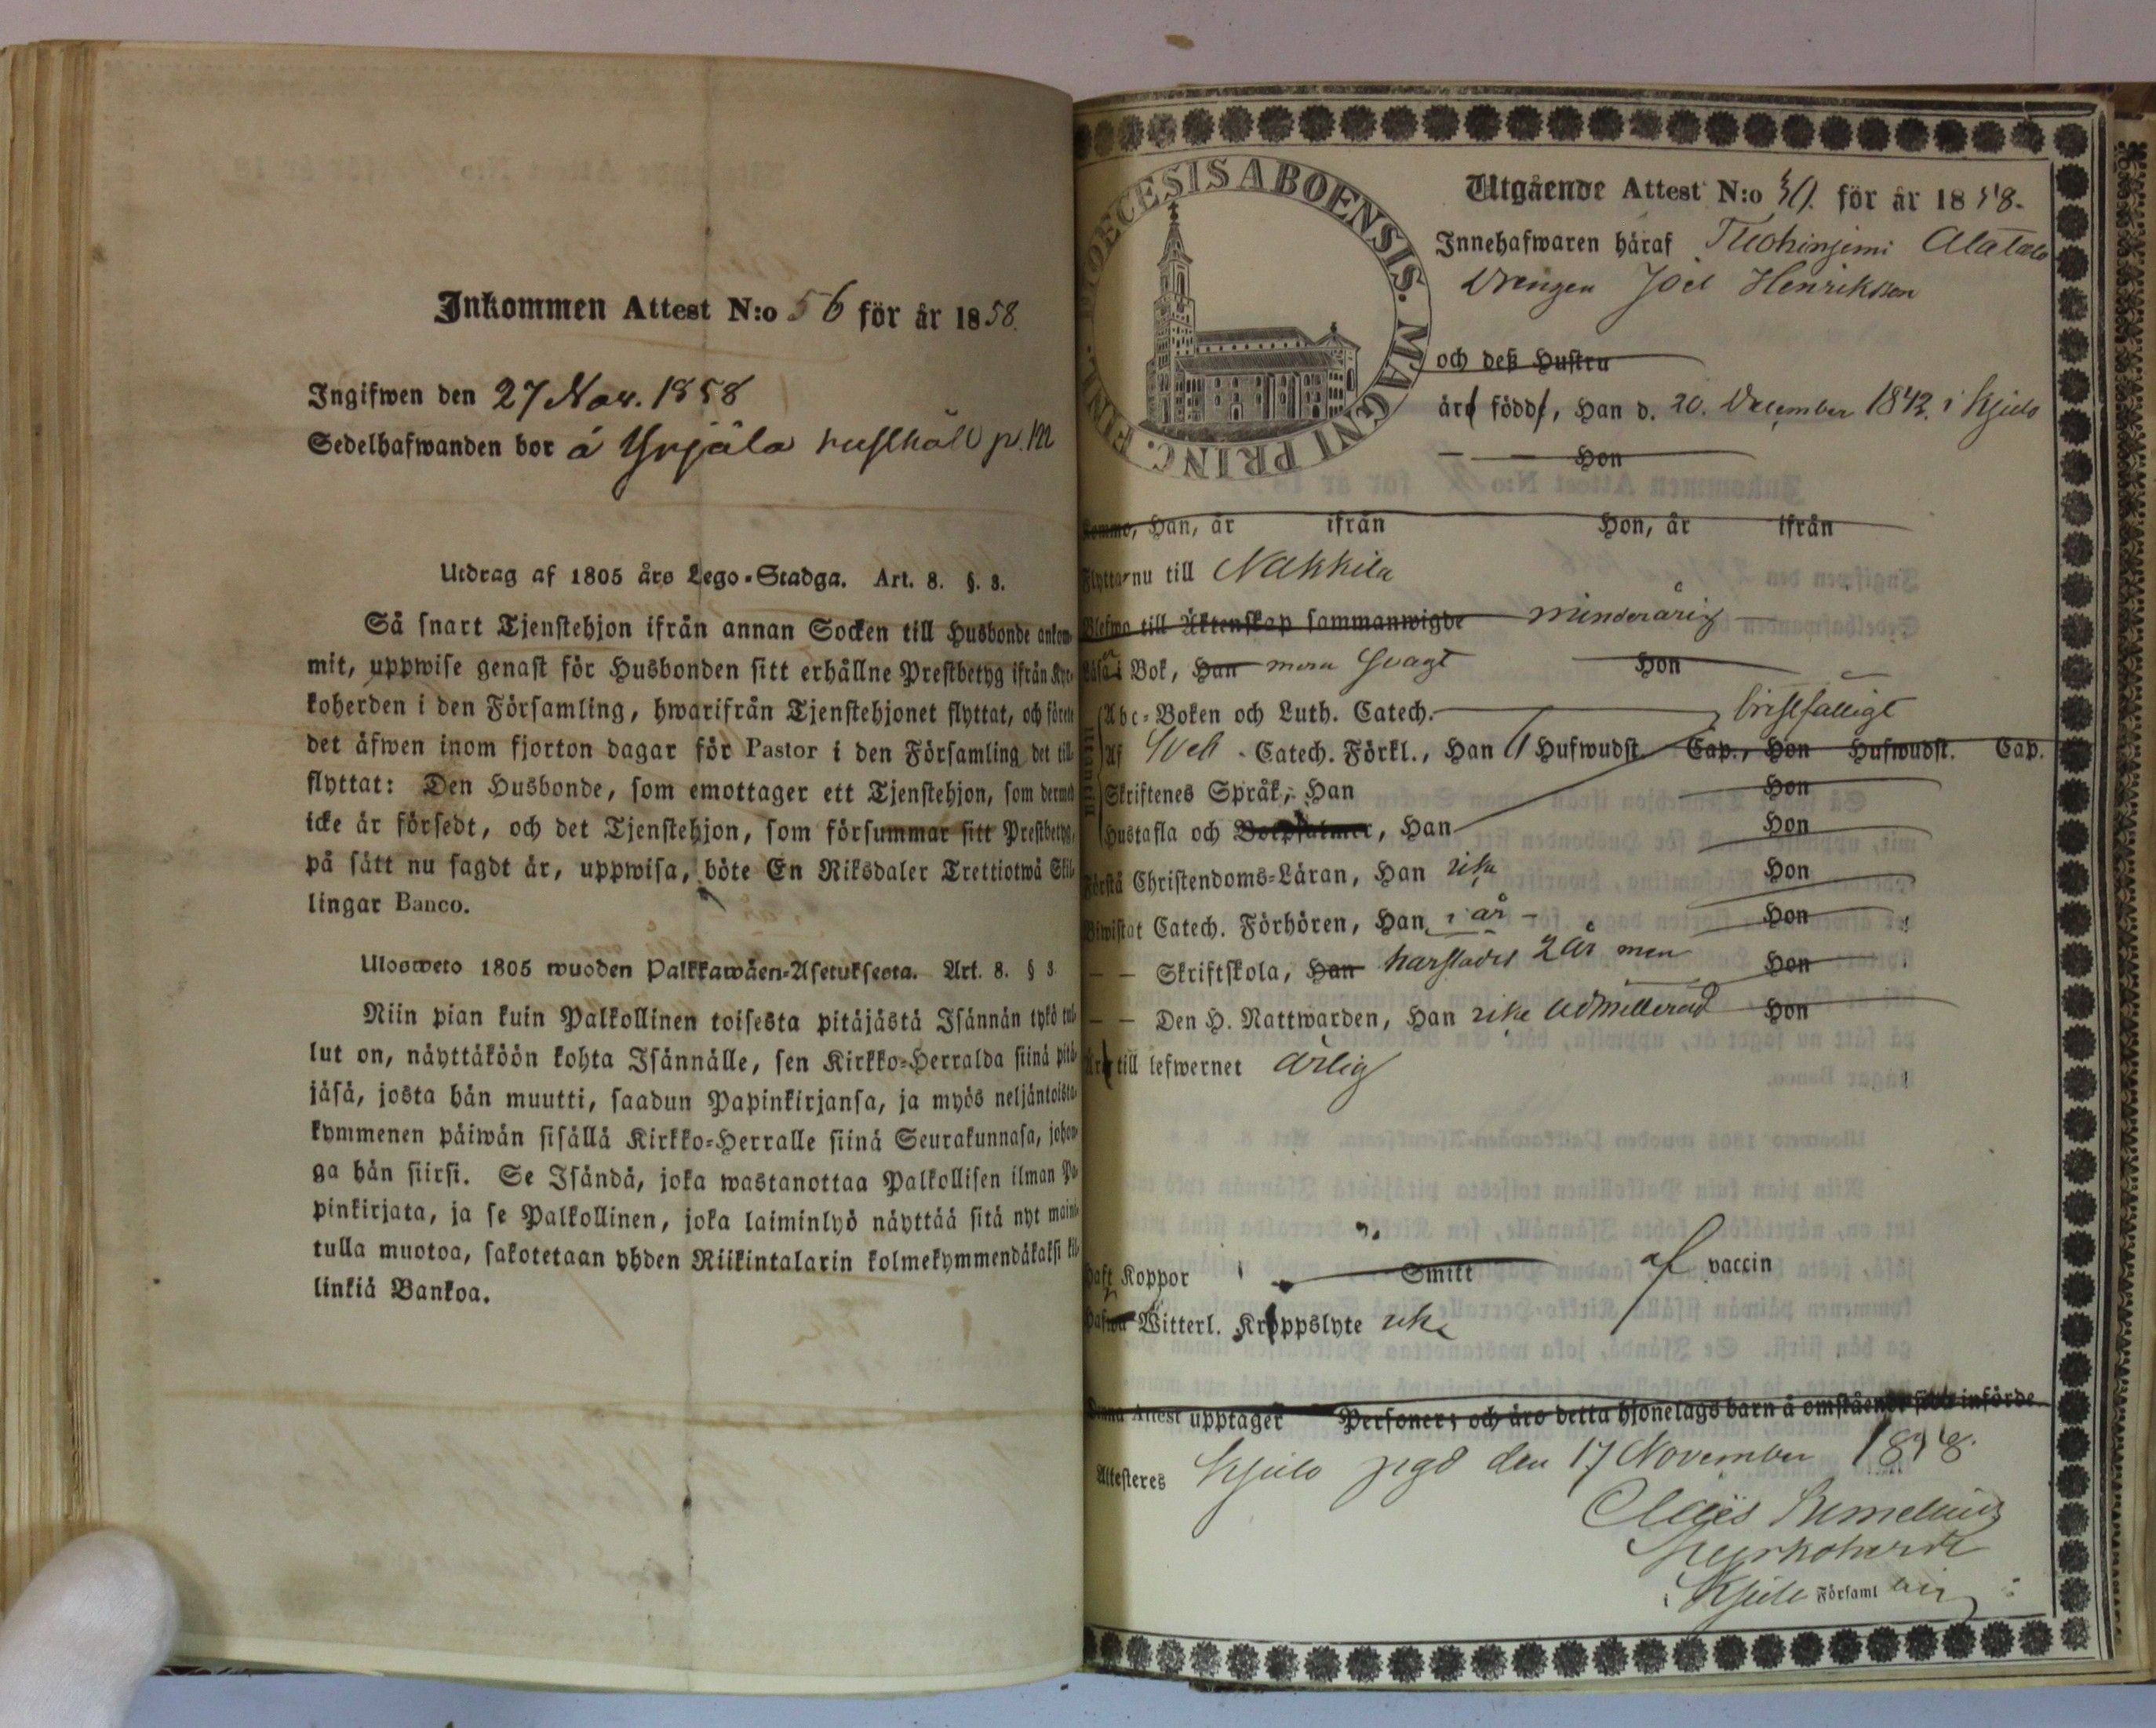 Inkommen Attest N:o 56 för år 1858.
Ingifwen den 27 Nov. 1858
Sedelhafwanden bor å Yrjälä rusthåll p. m
Utdrag af 1805 års Lego-Stadga. Art. 8. §. 3.
Så snart Tjenstehjon ifrån annan Socken till Husbonde ankom-
mit, uppwise genast för Husbonden sitt erhållne Prestbetyg ifrån Kyr-
koherden i den Församling, hwarifrån Tjenstehjonet flyttat, och förete
det äfwen inom fjorton dagar för Pastor i den Församling det till-
flyttat: Den Husbonde, som emottager ett Tjenstehjon, som dermed
icke är försedt, och det Tjenstehjon, som försummar sitt Prestbetyg,
på sätt nu sagdt är, uppwisa, böte En Riksdaler Trettiotwå Skil-
lingar Banco.
Ulosweto 1805 wuoden Palkkawäen-Asetuksesta. Art. 8. § 3
Niin pian kuin Palkollinen toisesta pitäjästä Isännän tykö tul-
lut on, näyttäköön kohta Isännälle, sen Kirkko-Herralda siinä pitä-
jäsä, josta hän muutti, saadun Papinkirjansa, ja myös neljäntoista-
kymmenen päiwän sisällä Kirkko-Herralle siinä Seurakunnasa, johon-
ga hän siirsi. Se Isändä, joka wastanottaa Palkollisen ilman Pa-
pinkirjata, ja se Palkollinen, joka laiminlyö näyttää sitä nyt maini-
tulla muotoa, sakotetaan yhden Riikintalarin kolmekymmendäkaksi kil-
linkiä Bankoa.
DIOECESIS ABOENSIS. MAGNI PRINC. FINL.
Utgående Attest N:o för år 1858.
Innehafwaren häraf Tuohiniemi Alatalo
Drengen Joel Henriksson
och deß Hustru
äro födde, Han d. 20. December 1842. i Kjulo
Hon
Kommo, Han, år ifrån Hon, år ifrån
Flytta nu till Nakkila
Blefwo till Äktenskap sammanwigde minderårig
Läsa i Bok, Han mera svagt Hon
Abc-Boken och Luth. Catech. bristfälligt
Af Catech. Förkl., Han Hufwudst. Cap., Hon Hufwudst. Cap.
Skriftenes Språk, Han Hon
Hustafla och Botpsalmer, Han Hon
Förstå Christendoms-Läran, Han icke Hon
Biwistat Catech. Förhören, Han i år Hon
– – Skriftskola, Han 2 år men Hon
– – Den H. Nattwarden, Han icke admitterad Hon
Äro till lefwernet ärlig
Haft Koppor Smitt af vaccin
Hafwa Witterl. Kroppslyte icke
Denna Attest upptager Personer; och äro detta hjonelags barn å omstående sida införde
Attesteres Kjulo pgd den 17 November 1858.
Claës
Kyrkoherde
i Kjulo Församling